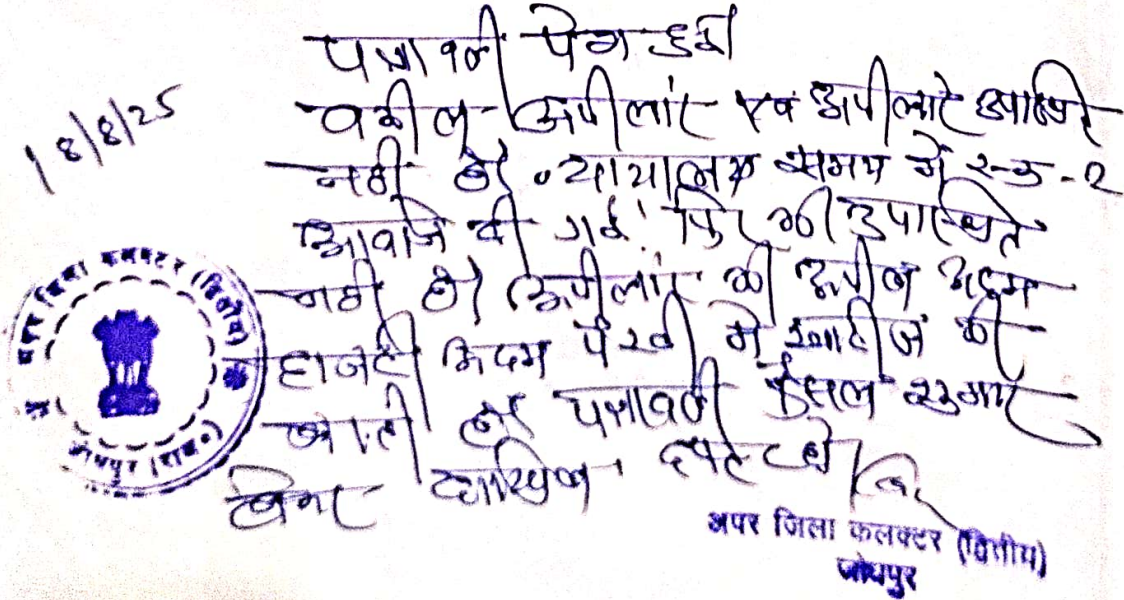 18/8/25
पत्रावली पेश हुई
वकील अपीलांट एवं अपीलांट उपस्थित
नहीं है। न्यायालय समय में रू-ब-रू
आवाजे दी गई। फिर भी उपस्थित
नहीं है। अपीलांट की अपील अदम
हाजरी अदम पैरवी में खारीज की
जाती है। पत्रावली फैसल शुमार
होकर दाखिल दफ्तर हो।
अपर जिला कलक्टर (द्वितीय)
जोधपुर
अपर जिला कलक्टर (द्वितीय)
जोधपुर (राज०)